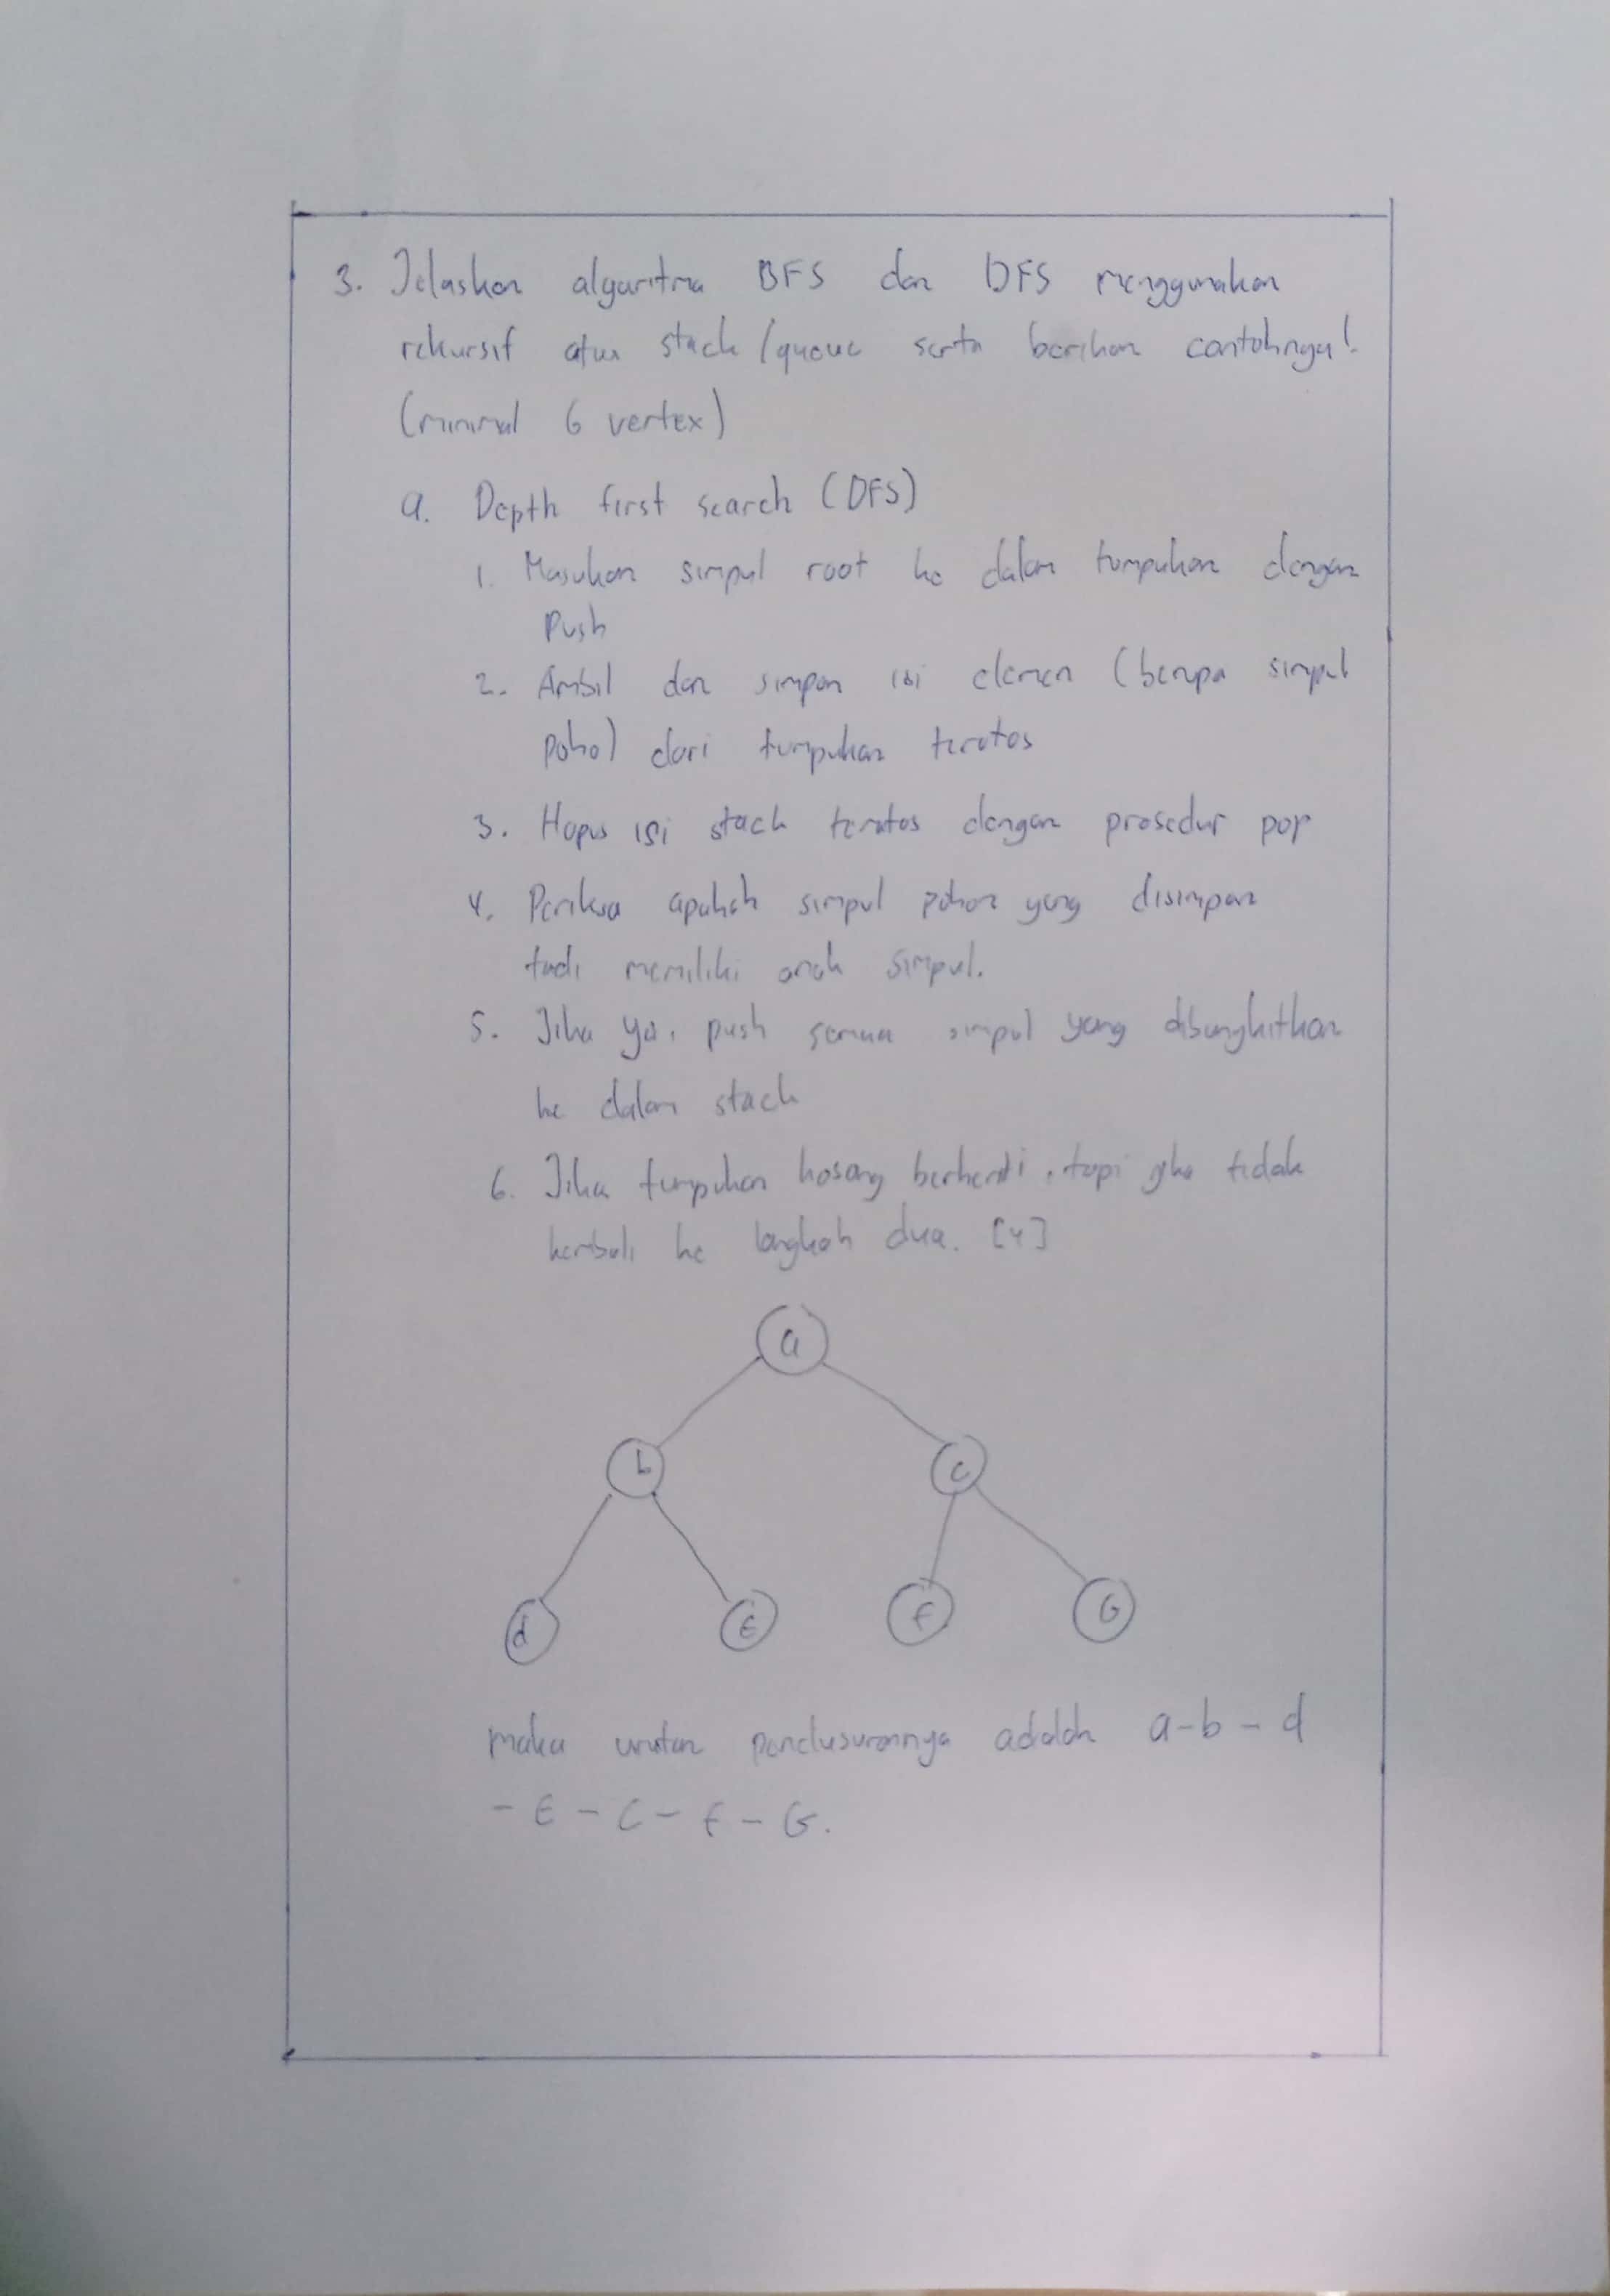 3. Jelaskan algoritma BFS dan DFS menggunakan
rekursif atau stack / queue serta berikan contohnya!
(minimal 6 vertex)
a. Depth first search (DFS)
1. Masukan simpul root ke dalam tumpukan dengan
Push
2. Ambil dan simpan isi elemen (berupa simpul
poho) dari tumpukan teratas
3. Hapus isi stack teratas dengan prosedur pop
4. Periksa apakah simpul pohon yang disimpan
tadi memiliki anak simpul.
5. Jika ya, push semua simpul yang dibangkitkan
ke dalam stack
6. Jika tumpukan kosong berhenti, tapi jika tidak
kembali ke langkah dua. [4]
a
b c
d E F G
maka urutan penelusurannya adalah a-b-d
- E - C - F - G.